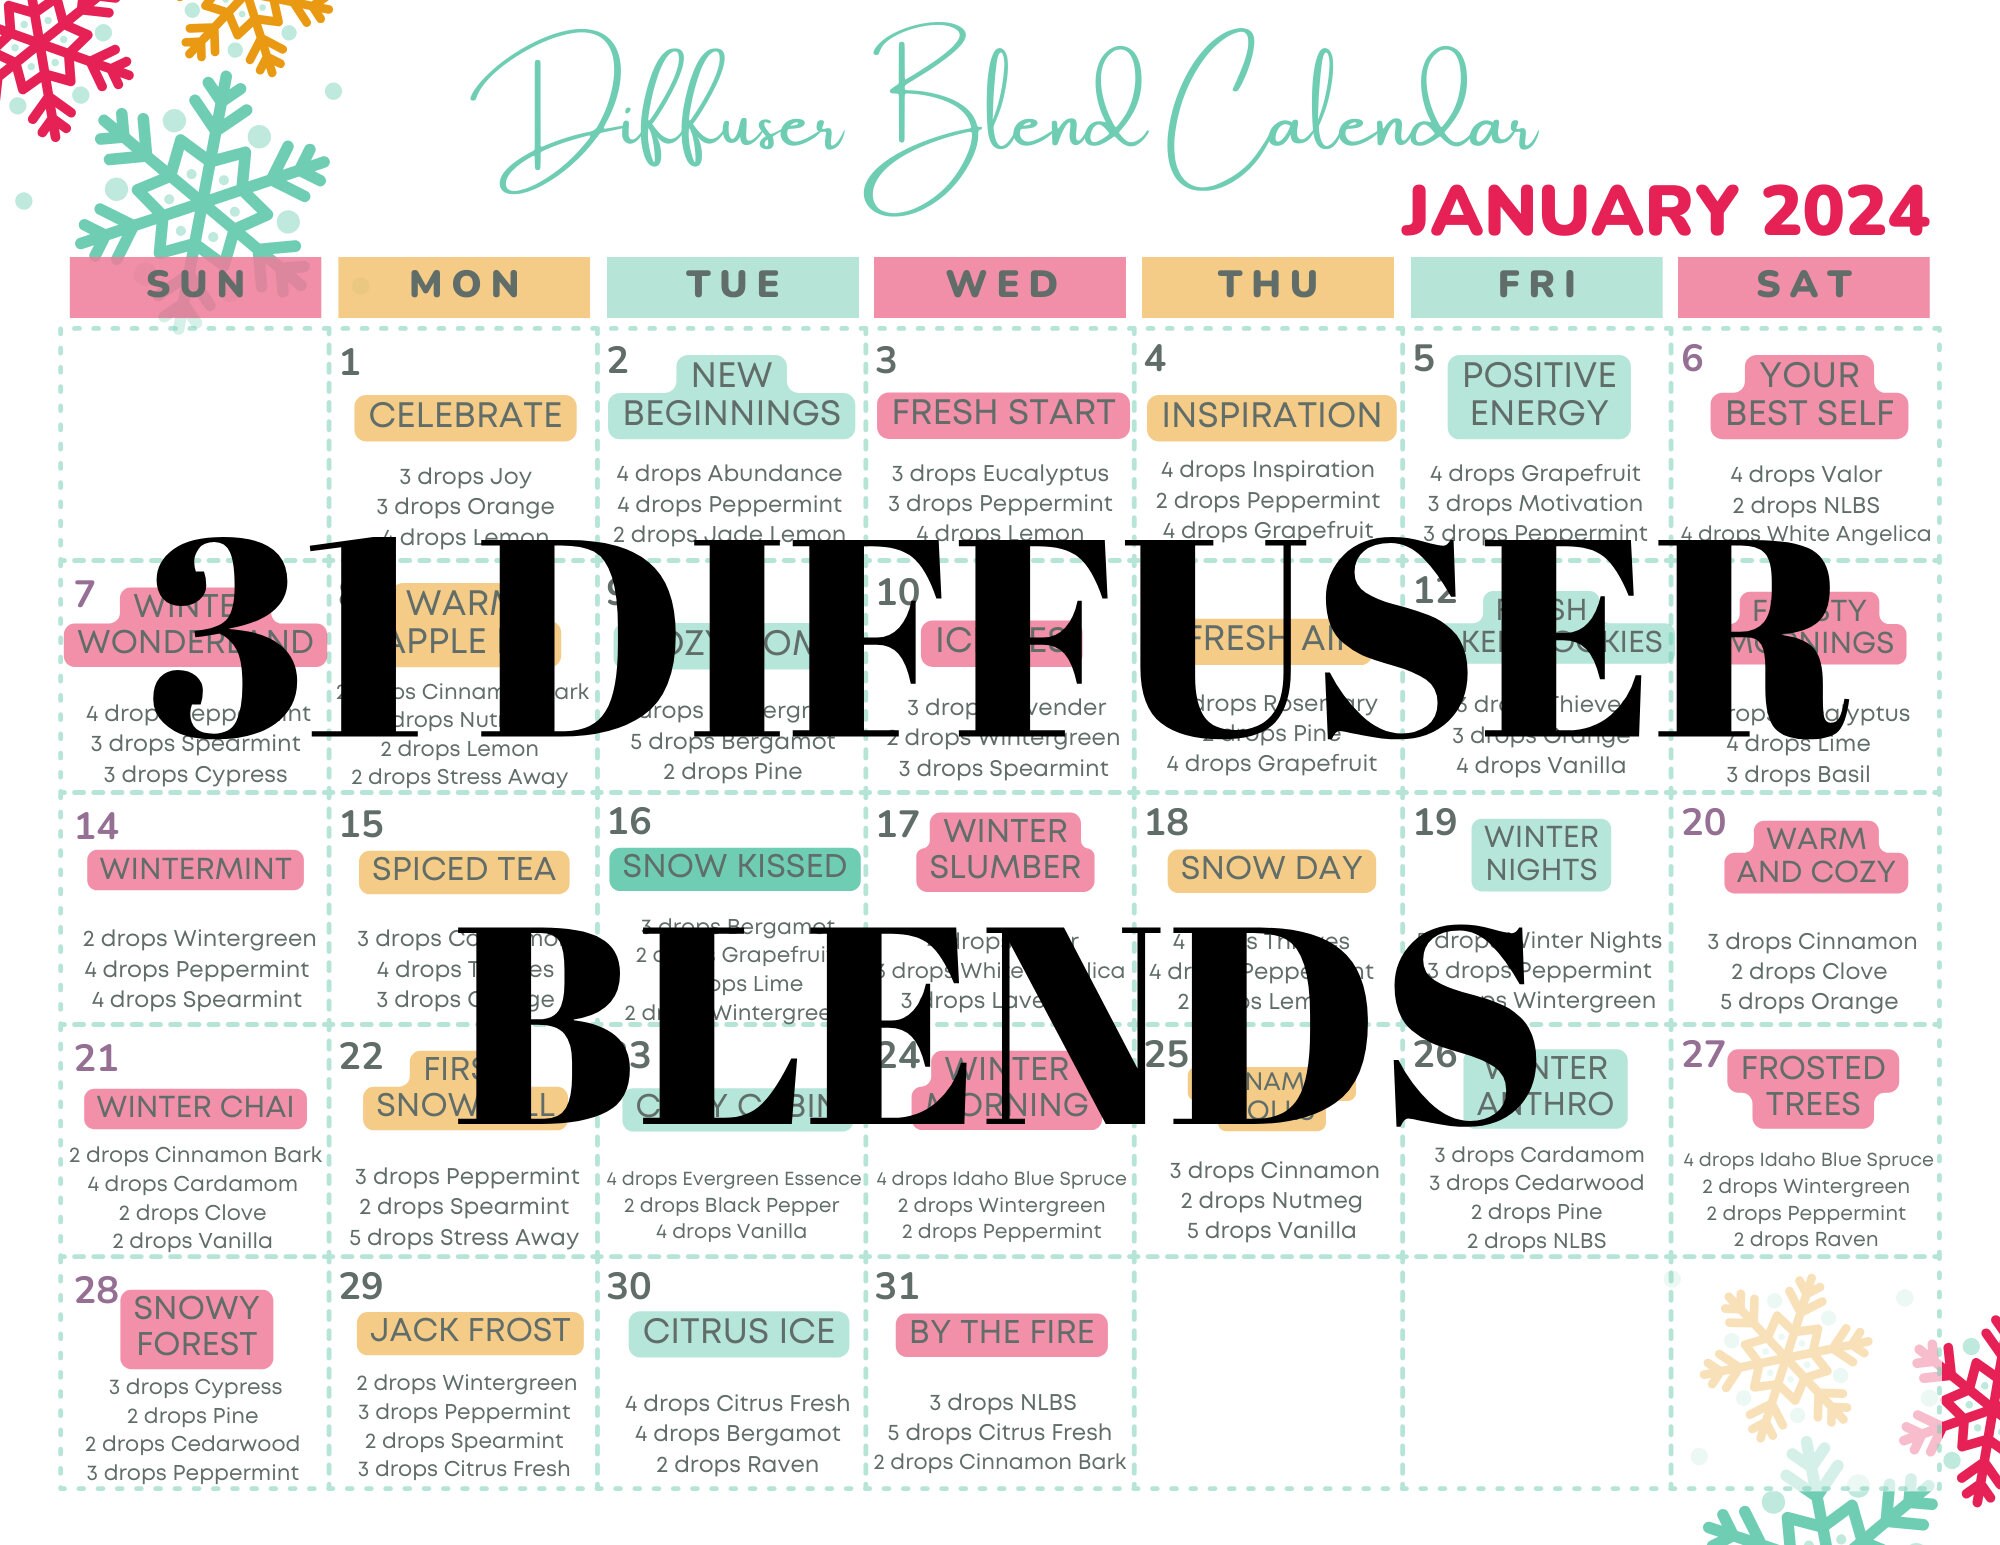 Diffuser Blend Calendar
JANUARY 2024
SUN MON TUE WED THU FRI SAT
1
CELEBRATE
3 drops Joy
3 drops Orange
4 drops Lemon
2
NEW
BEGINNINGS
4 drops Abundance
4 drops Peppermint
2 drops Jade Lemon
3
FRESH START
3 drops Eucalyptus
3 drops Peppermint
4 drops Lemon
4
INSPIRATION
4 drops Inspiration
2 drops Peppermint
4 drops Grapefruit
5
POSITIVE
ENERGY
4 drops Grapefruit
3 drops Motivation
3 drops Peppermint
6
YOUR
BEST SELF
4 drops Valor
2 drops NLBS
4 drops White Angelica
31 DIFFUSER
7
WINTER
WONDERLAND
4 drops Peppermint
3 drops Spearmint
3 drops Cypress
WARM
APPLE
drops Cinnamon Bark
drops
2 drops Lemon
2 drops Stress Away
9
drops
5 drops Bergamot
2 drops Pine
10
3 drops Lavender
2 drops Wintergreen
3 drops Spearmint
FRESH AIR
drops Rosemary
2 drops Pine
4 drops Grapefruit
12
drops Thieves
3 drops Orange
4 drops Vanilla
FROSTY
MORNINGS
drops Eucalyptus
4 drops Lime
3 drops Basil
14
WINTERMINT
2 drops Wintergreen
4 drops Peppermint
4 drops Spearmint
15
SPICED TEA
3 drops Cardamom
4 drops Thieves
3 drops Orange
16
SNOW KISSED
3 drops Bergamot
2 drops Grapefruit
drops Lime
2 drops Wintergreen
17
WINTER
SLUMBER
drops
3 drops White Angelica
3 drops Lavender
18
SNOW DAY
4 drops Thieves
4 drops Peppermint
2 drops Lemon
19
WINTER
NIGHTS
drops Winter Nights
3 drops Peppermint
drops Wintergreen
20
WARM
AND COZY
3 drops Cinnamon
2 drops Clove
5 drops Orange
BLENDS
21
WINTER CHAI
2 drops Cinnamon Bark
4 drops Cardamom
2 drops Clove
2 drops Vanilla
22
FIRST
SNOWFALL
3 drops Peppermint
2 drops Spearmint
5 drops Stress Away
23
COZY CABIN
4 drops Evergreen Essence
2 drops Black Pepper
4 drops Vanilla
24
WINTER
MORNING
4 drops Idaho Blue Spruce
2 drops Wintergreen
2 drops Peppermint
25
CINNAMON
ROLLS
3 drops Cinnamon
2 drops Nutmeg
5 drops Vanilla
26
WINTER
ANTHRO
3 drops Cardamom
3 drops Cedarwood
2 drops Pine
2 drops NLBS
27
FROSTED
TREES
4 drops Idaho Blue Spruce
2 drops Wintergreen
2 drops Peppermint
2 drops Raven
28
SNOWY
FOREST
3 drops Cypress
2 drops Pine
2 drops Cedarwood
3 drops Peppermint
29
JACK FROST
2 drops Wintergreen
3 drops Peppermint
2 drops Spearmint
3 drops Citrus Fresh
30
CITRUS ICE
4 drops Citrus Fresh
4 drops Bergamot
2 drops Raven
31
BY THE FIRE
3 drops NLBS
5 drops Citrus Fresh
2 drops Cinnamon Bark